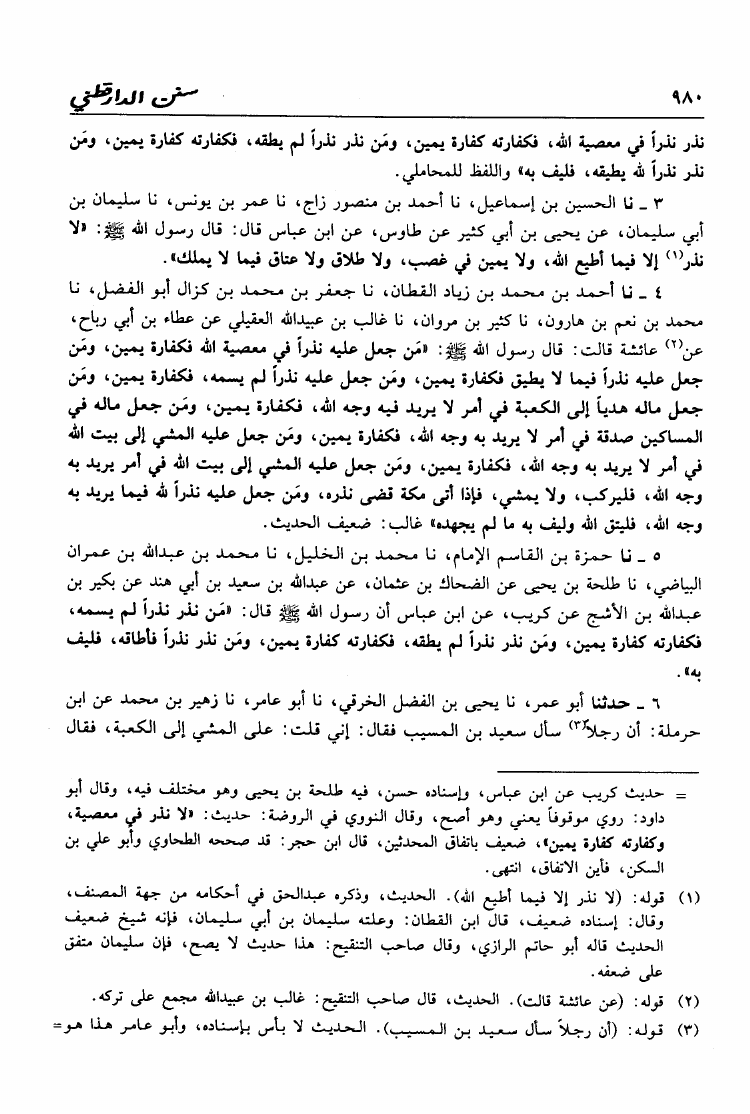 ٩٨٠
سنن الدارقطني
نذر نذراً في معصية الله، فكفارته كفارة يمين، ومَن نذر نذراً لم يطقه، فكفارته كفارة يمين، ومَن
نذر نذراً لله يطيقه، فليف به» واللفظ للمحاملي.
٣ ـ نا الحسين بن إسماعيل، نا أحمد بن منصور زاج، نا عمر بن يونس، نا سليمان بن
أبي سليمان، عن يحيى بن أبي كثير عن طاوس، عن ابن عباس قال: قال رسول الله ﷺ: «لا
نذر(١) إلا فيما أطيع الله، ولا يمين في غصب، ولا طلاق ولا عتاق فيما لا يملك».
٤ ـ نا أحمد بن محمد بن زياد القطان، نا جعفر بن محمد بن كزال أبو الفضل، نا
محمد بن نعم بن هارون، نا كثير بن مروان، نا غالب بن عبيدالله العقيلي عن عطاء بن أبي رباح،
عن(٢) عائشة قالت: قال رسول الله ﷺ: «مَن جعل عليه نذراً في معصية الله فكفارة يمين، ومَن
جعل عليه نذراً فيما لا يطيق فكفارة يمين، ومَن جعل عليه نذراً لم يسمه، فكفارة يمين، ومَن
جعل ماله هدياً إلى الكعبة في أمر لا يريد فيه وجه الله، فكفارة يمين، ومَن جعل ماله في
المساكين صدقة في أمر لا يريد به وجه الله، فكفارة يمين، ومَن جعل عليه المشي إلى بيت الله
في أمر لا يريد به وجه الله، فكفارة يمين، ومَن جعل عليه المشي إلى بيت الله في أمر يريد به
وجه الله، فليركب، ولا يمشي، فإذا أتى مكة قضى نذره، ومَن جعل عليه نذراً لله فيما يريد به
وجه الله، فليتق الله وليف به ما لم يجهده» غالب: ضعيف الحديث.
٥ ـ نا حمزة بن القاسم الإمام، نا محمد بن الخليل، نا محمد بن عبدالله بن عمران
البياضي، نا طلحة بن يحيى عن الضحاك بن عثمان، عن عبدالله بن سعيد بن أبي هند عن بكير بن
عبدالله بن الأشج عن كريب، عن ابن عباس أن رسول الله ﷺ قال: «مَن نذر نذراً لم يسمه،
فكفارته كفارة يمين، ومَن نذر نذراً لم يطقه، فكفارته كفارة يمين، ومَن نذر نذراً فأطاقه، فليف
به».
٦ ـ حدثنا أبو عمر، نا يحيى بن الفضل الخرقي، نا أبو عامر، نا زهير بن محمد عن ابن
حرملة: أن رجلاً(٣) سأل سعيد بن المسيب فقال: إني قلت: على المشي إلى الكعبة، فقال
= حديث كريب عن ابن عباس، وإسناده حسن، فيه طلحة بن يحيى وهو مختلف فيه، وقال أبو
داود: روي موقوفاً يعني وهو أصح، وقال النووي في الروضة: حديث: «لا نذر في معصية،
وكفارته كفارة يمين»، ضعيف باتفاق المحدثين، قال ابن حجر: قد صححه الطحاوي وأبو علي بن
السكن، فأين الاتفاق، انتهى.
(١) قوله: (لا نذر إلا فيما أطيع الله). الحديث، وذكره عبدالحق في أحكامه من جهة المصنف،
وقال: إسناده ضعيف، قال ابن القطان: وعلته سليمان بن أبي سليمان، فإنه شيخ ضعيف
الحديث قاله أبو حاتم الرازي، وقال صاحب التنقيح: هذا حديث لا يصح، فإن سليمان متفق
على ضعفه.
(٢) قوله: (عن عائشة قالت). الحديث، قال صاحب التنقيح: غالب بن عبيدالله مجمع على تركه.
(٣) قوله: (أن رجلاً سأل سعيد بن المسيب). الحديث لا بأس بإسناده، وأبو عامر هذا هو=